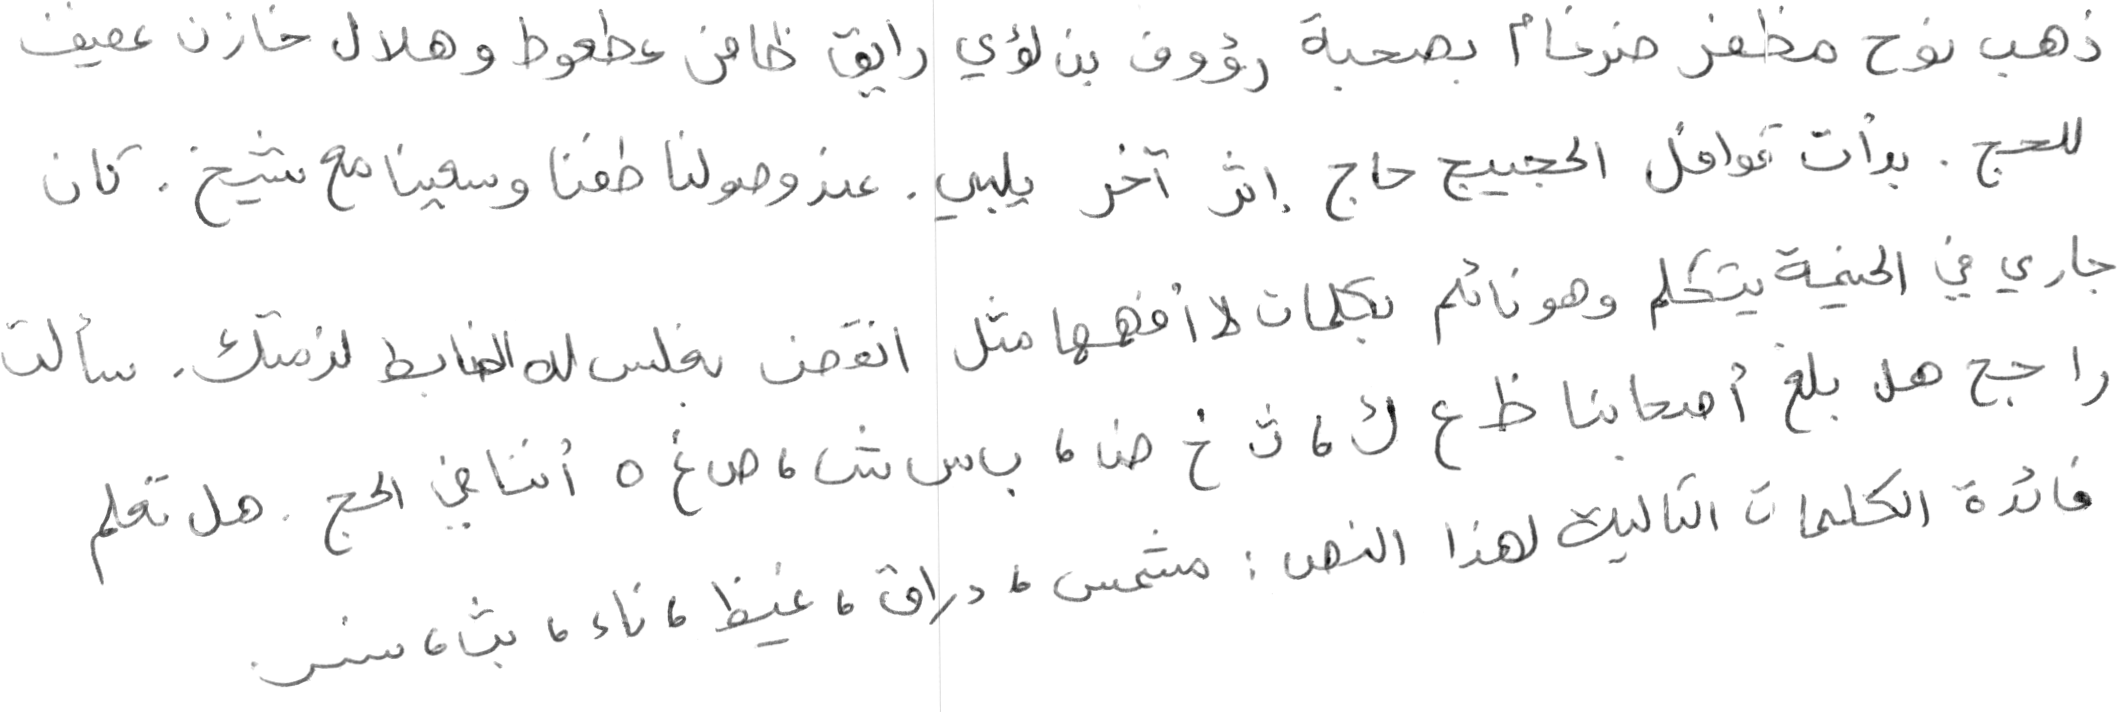 ذهب نوح مظفر ضرغام بصحبة رؤوف بن لؤي رايق ظافر عطعوط وهلال خازن عفيف
للحج. بدأت قوافل الحجيج حاج إثر آخر يلبي. عند وصولنا طفنا وسعينا مع شيخ. كان
جاري في الخيمة يتكلم وهو نائم بكلمات لا أفهمها مثل انقض بغلس له الضابط لزمتك. سألت
راجح هل بلغ أصحابنا ظ ع ك، ث خ ض، ب س ش، ص غ ه أننا في الحج. هل تعلم
فائدة الكلمات التالية لهذا النص: مشمس، دراق، غيظ، ناء، بث، سنن